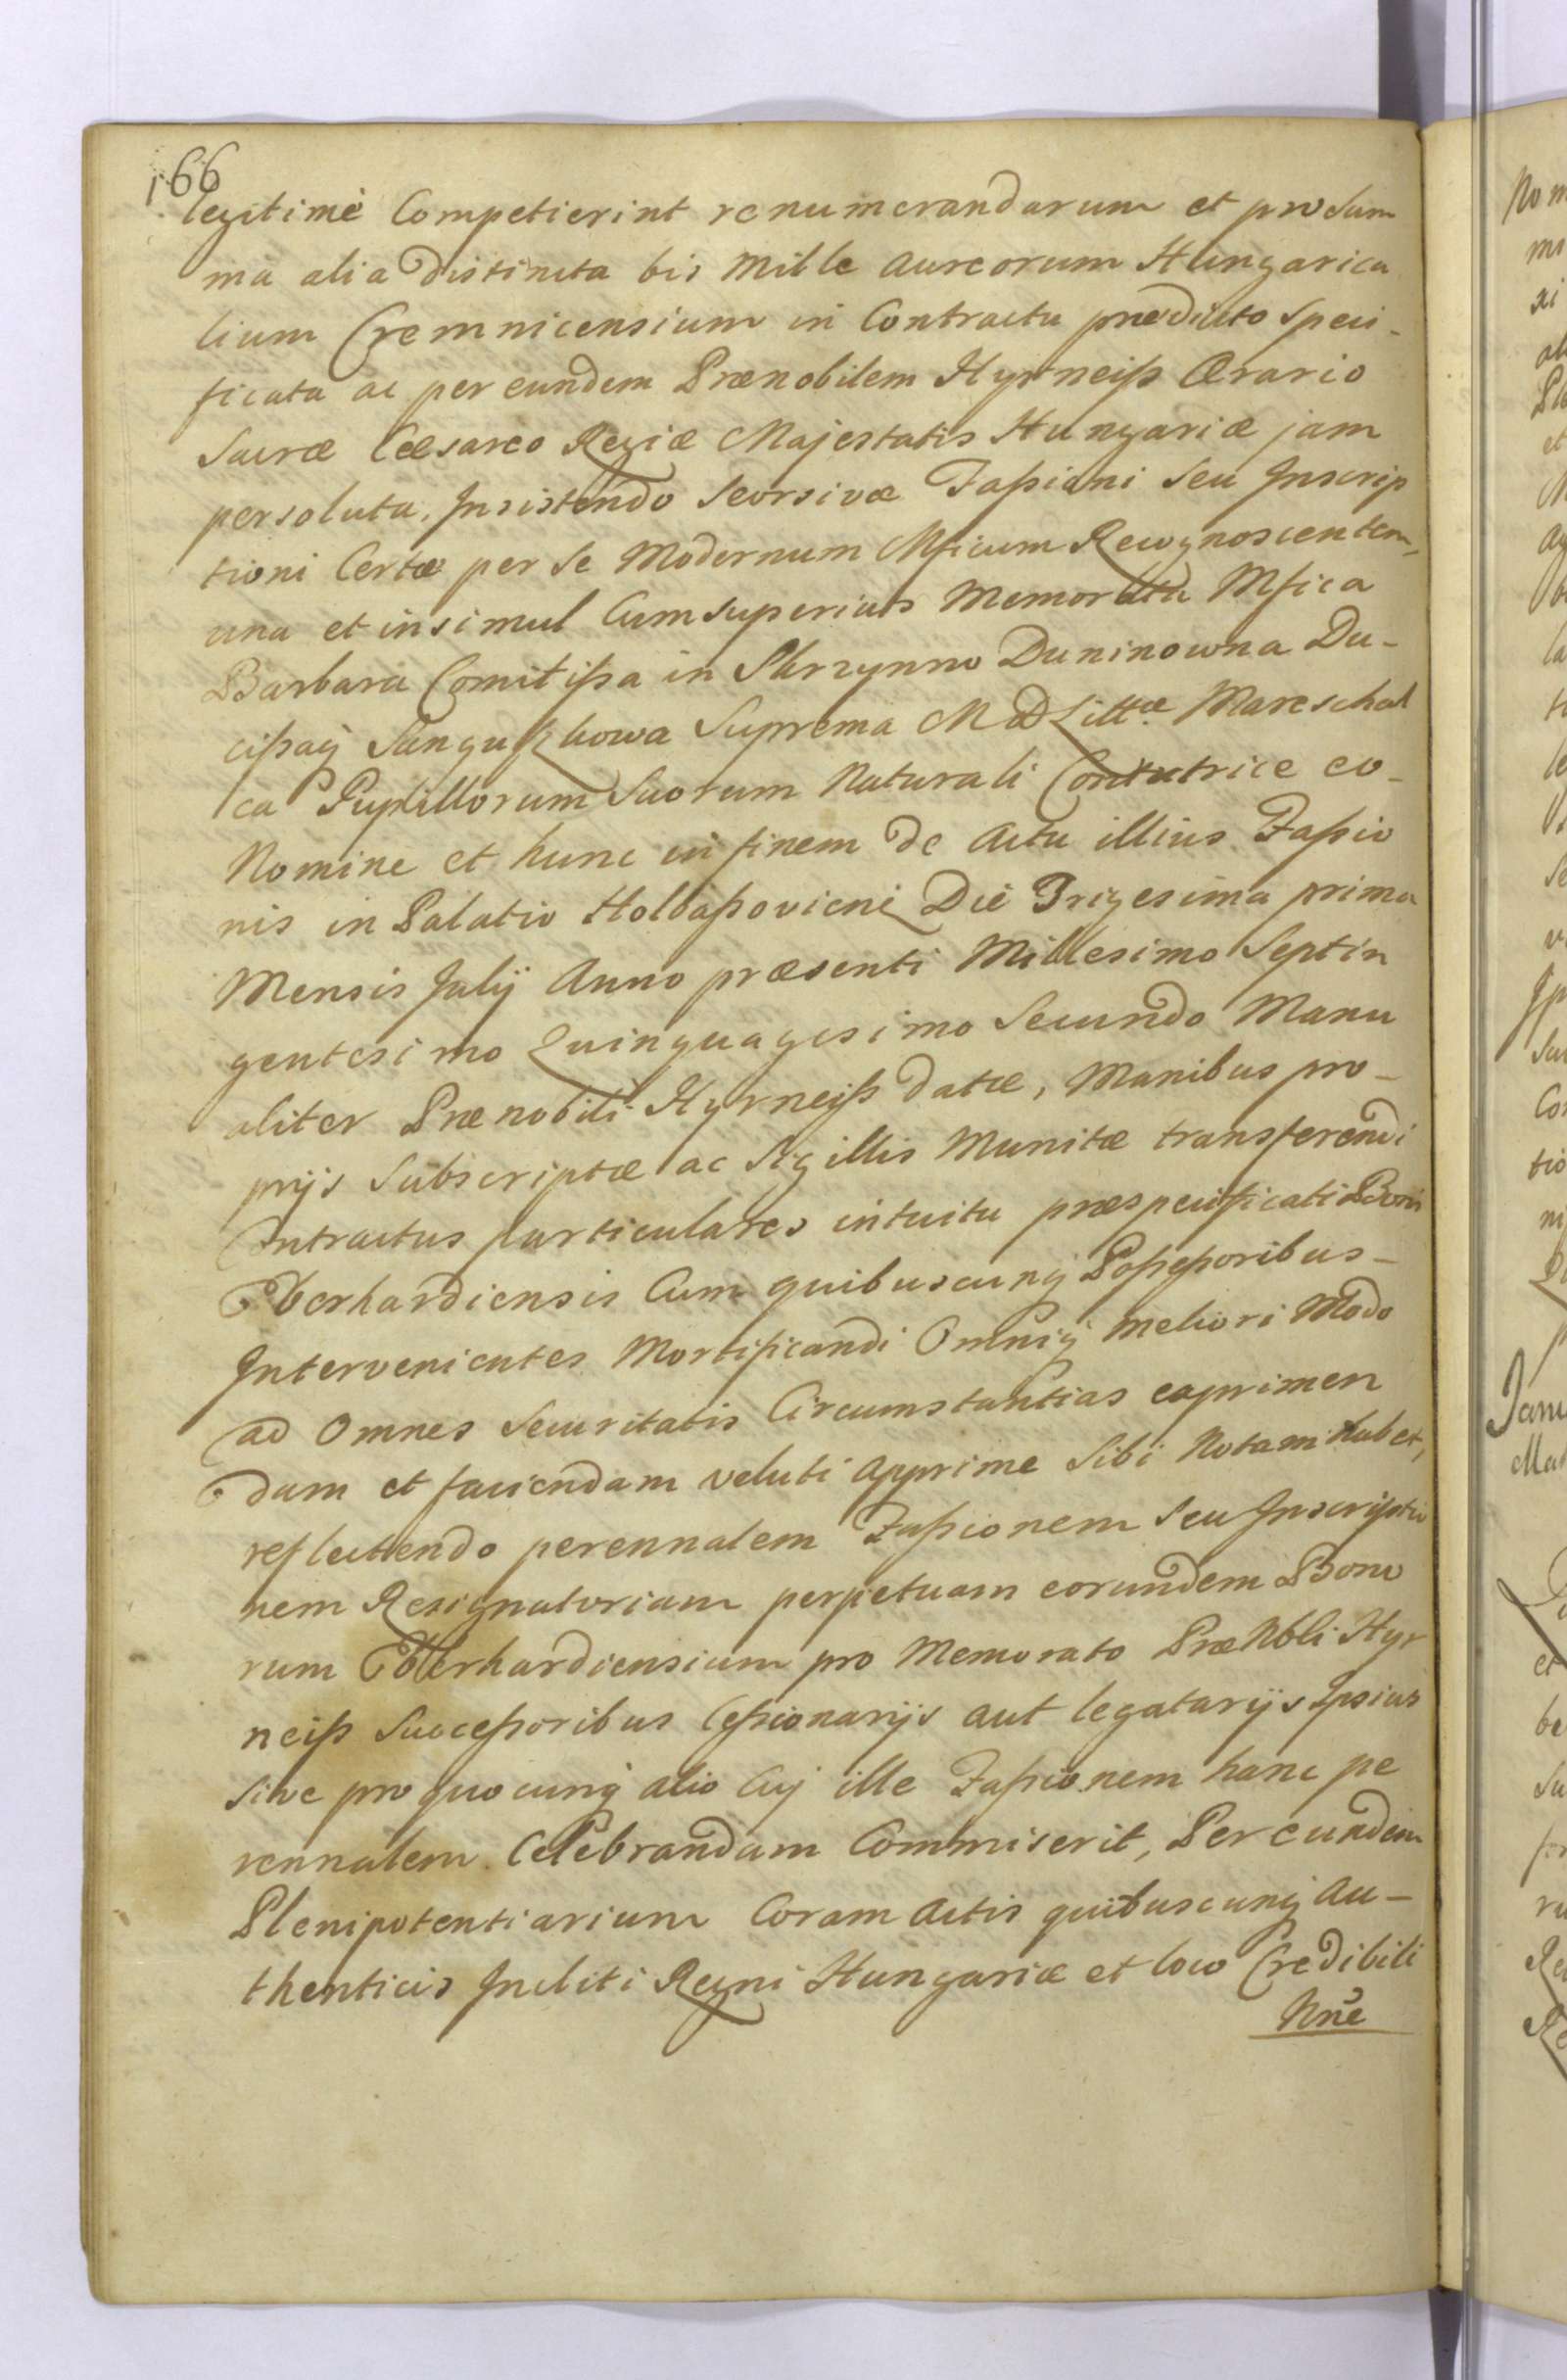 166
legitimè Competierint renumerandarum et pro Sum
mà alia distincta bis Mille Aureorum Hungarica
lium Cremnicensium in Contractu prædicto Speci-
ficata ac per eundem Prænobilem Hyrneiß Ærario
Sacræ Cæsareo Regiæ Majestatis Hungariæ jam
persoluta, Insistendo Seorsivæ Faßioni Seu Inscrip
tioni Certæ per Se Modernum Mficum Recognoscentem,
una et insimul Cum Superius Memorata Mfica
Barbara Comitißa in Skrzynno Duninowna Du-
cißaq Sanguszkowa Suprema M D Littæ Mareschal
ca Pupillorum Suorum Naturali Contutrice eo-
Nomine et hunc in finem de Actu illius Faßio
nis in Palatio Kolbaßoviens Die Trigesima prima
Mensis Julij Anno præsenti Millesimo Septin
gentesimo Quinquagesimo Secundo Manu
aliter Prænobili Hyrneiß datæ, Manibus pro-
prijs Subscriptæ ac Sigillis Munitæ transferendi
Contractus particulares intuitu præspecificati Boni
Eberhardiensis Cum quibuscunq Poßeßoribus-
Intervenientes Mortificandi Omniq meliori Modo
ad Omnes Securitatis Circumstantias exprimen
dam et faciendam veluti apprime Sibi Notam habet,
reflectendo perennalem Faßionem Seu Inscriptio
nem Resignatoriam perpetuam eorundem Bono
rum Eberhardiensium pro Memorato PræNbli Hyr
neiß Succeßoribus Ceßionarijs aut legatarijs Ipsius
Sive pro quocunq alio Cuj ille Faßionem hanc pe
rennalem Celebrandam Commiserit, Per eundem
Plenipotentiarium Coram Actis quibuscunq Au-
thenticis Incliti Regni Hungariæ et loco Credibili
Nne